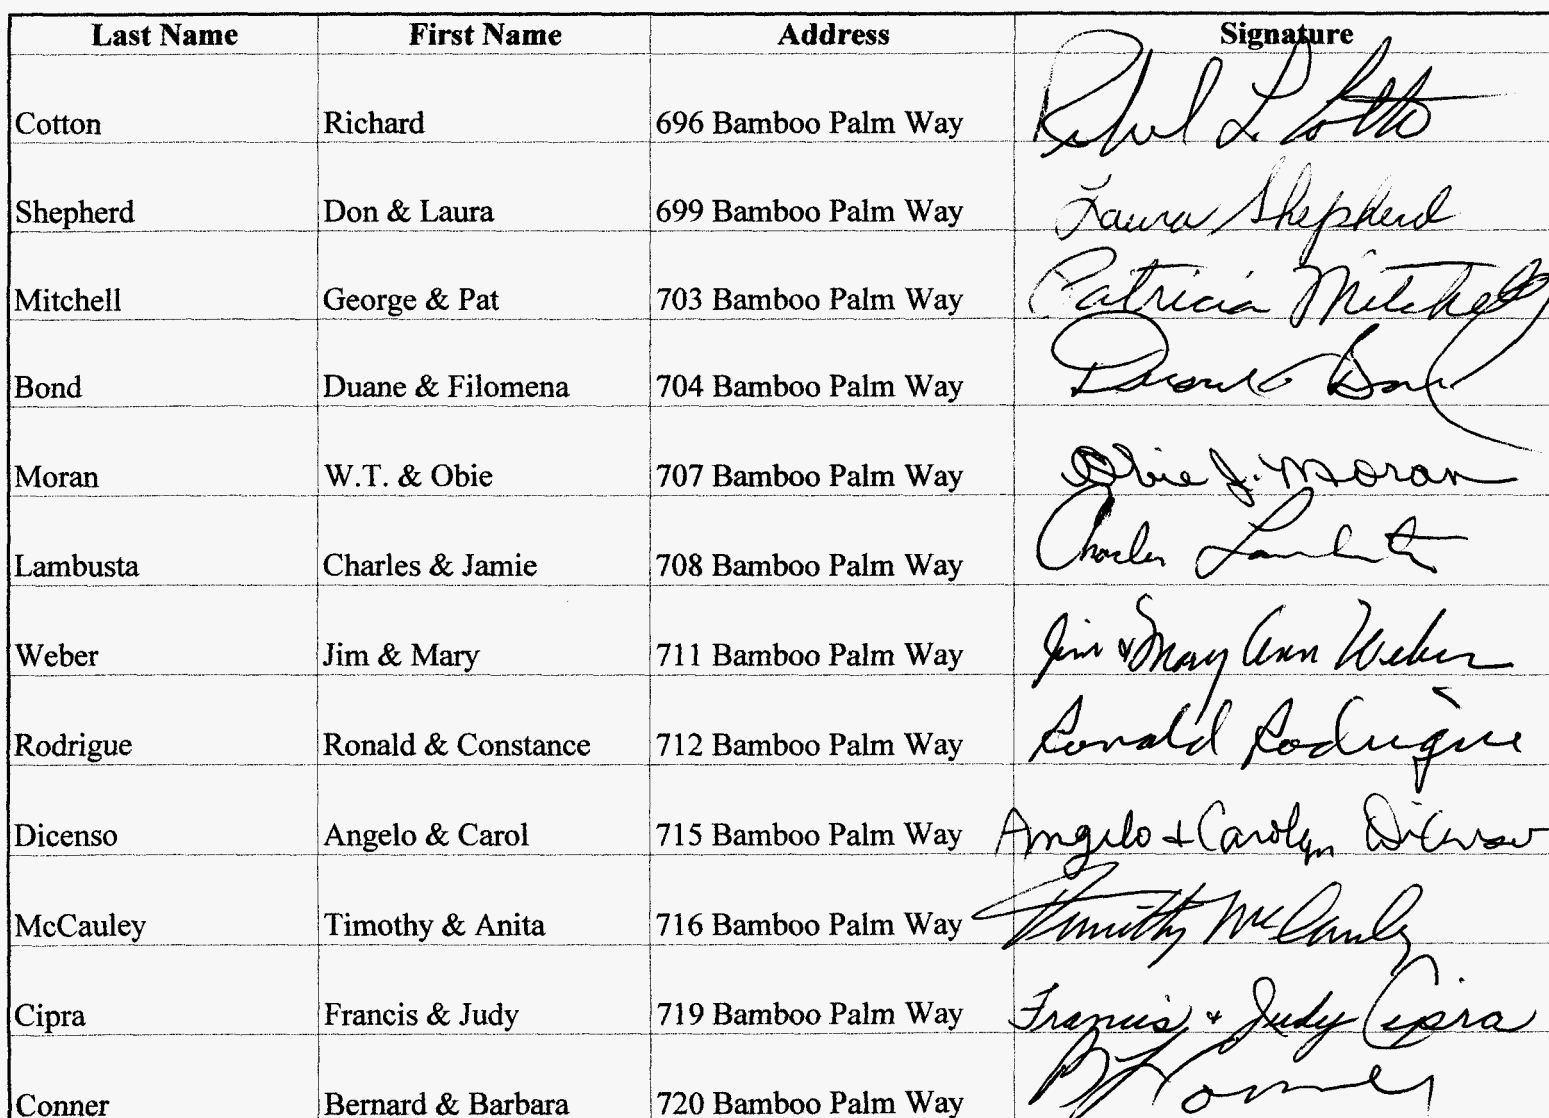 Last Name First Name Address Signature
Cotton Richard 696 Bamboo Palm Way Richard L. Cotton
Shepherd Don & Laura 699 Bamboo Palm Way Laura Shepherd
Mitchell George & Pat 703 Bamboo Palm Way Patricia Mitchell
Bond Duane & Filomena 704 Bamboo Palm Way Duane Bond
Moran W.T. & Obie 707 Bamboo Palm Way Obie J. Moran
Lambusta Charles & Jamie 708 Bamboo Palm Way Charles Lambusta
Weber Jim & Mary 711 Bamboo Palm Way Jim & Mary Ann Weber
Rodrigue Ronald & Constance 712 Bamboo Palm Way Ronald Rodrigue
Dicenso Angelo & Carol 715 Bamboo Palm Way Angelo & Carolyn DiCenso
McCauley Timothy & Anita 716 Bamboo Palm Way Timothy McCauley
Cipra Francis & Judy 719 Bamboo Palm Way Francis & Judy Cipra
Conner Bernard & Barbara 720 Bamboo Palm Way